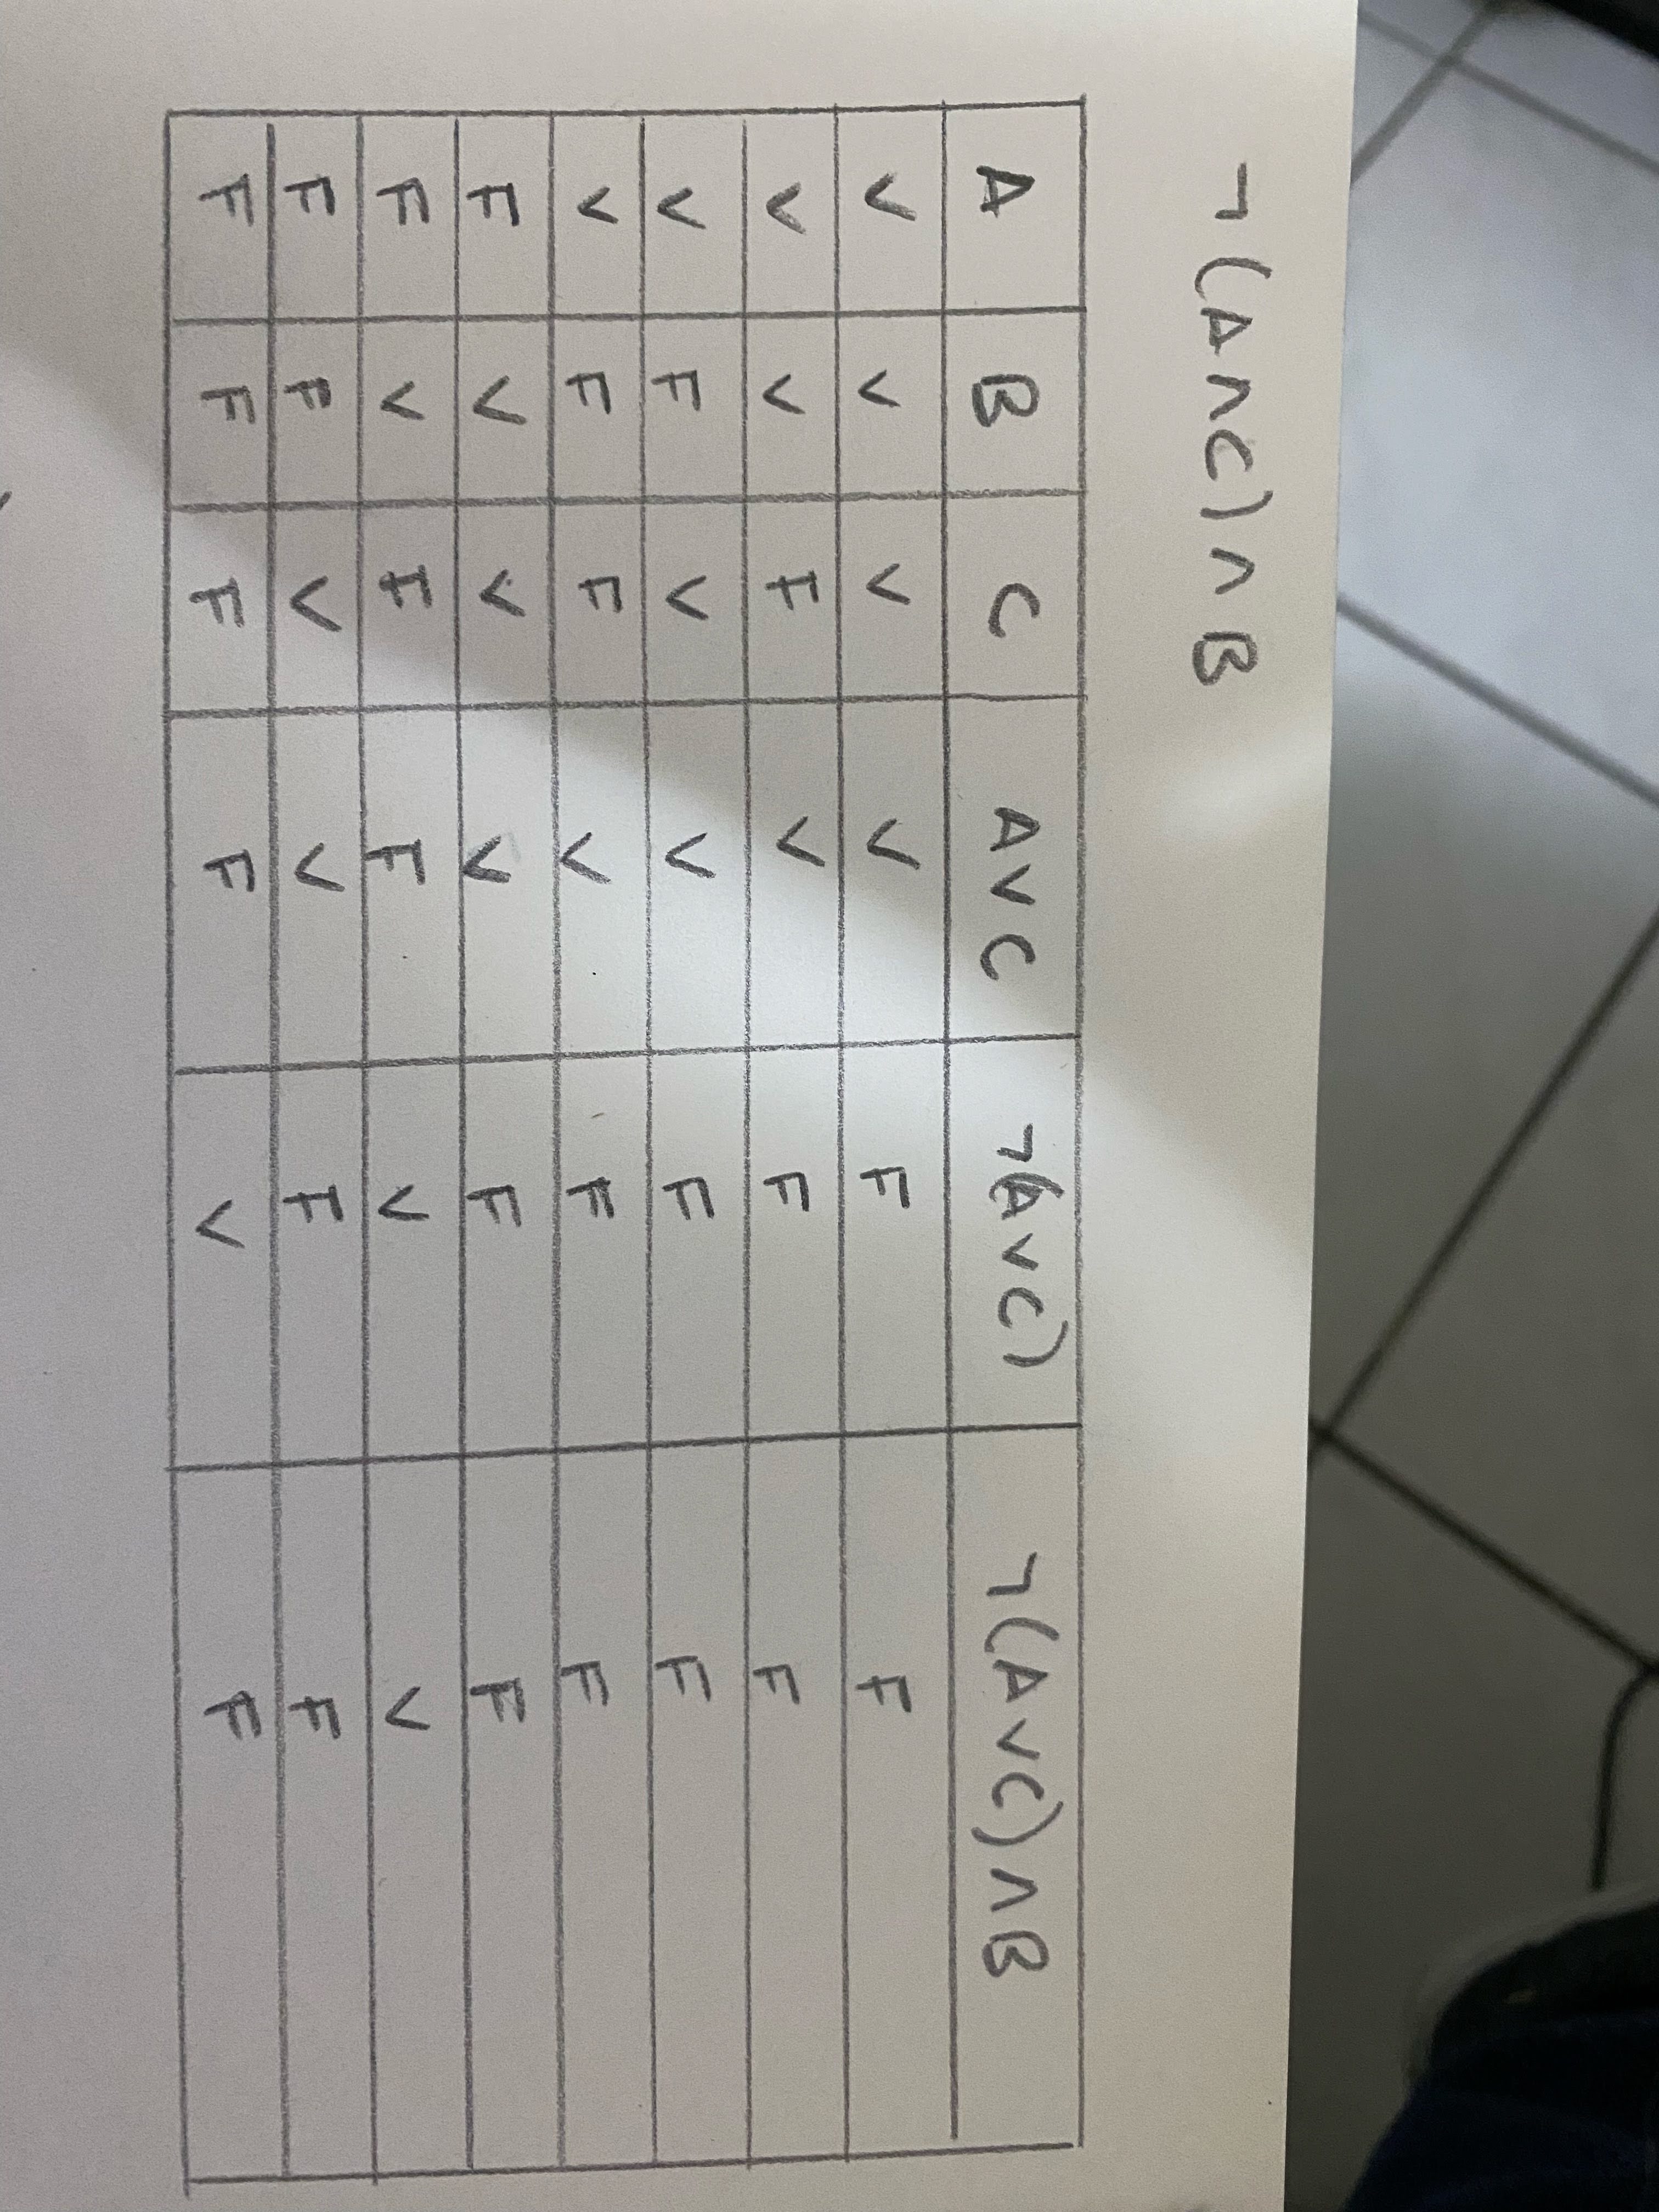 ¬(A∧C)∧B
A B C A∨C ¬(A∨C) ¬(A∨C)∧B
V V V V F F
V V F V F F
V F V V F F
V F F V F F
F V V V F F
F V F F V V
F F V V F F
F F F F V F